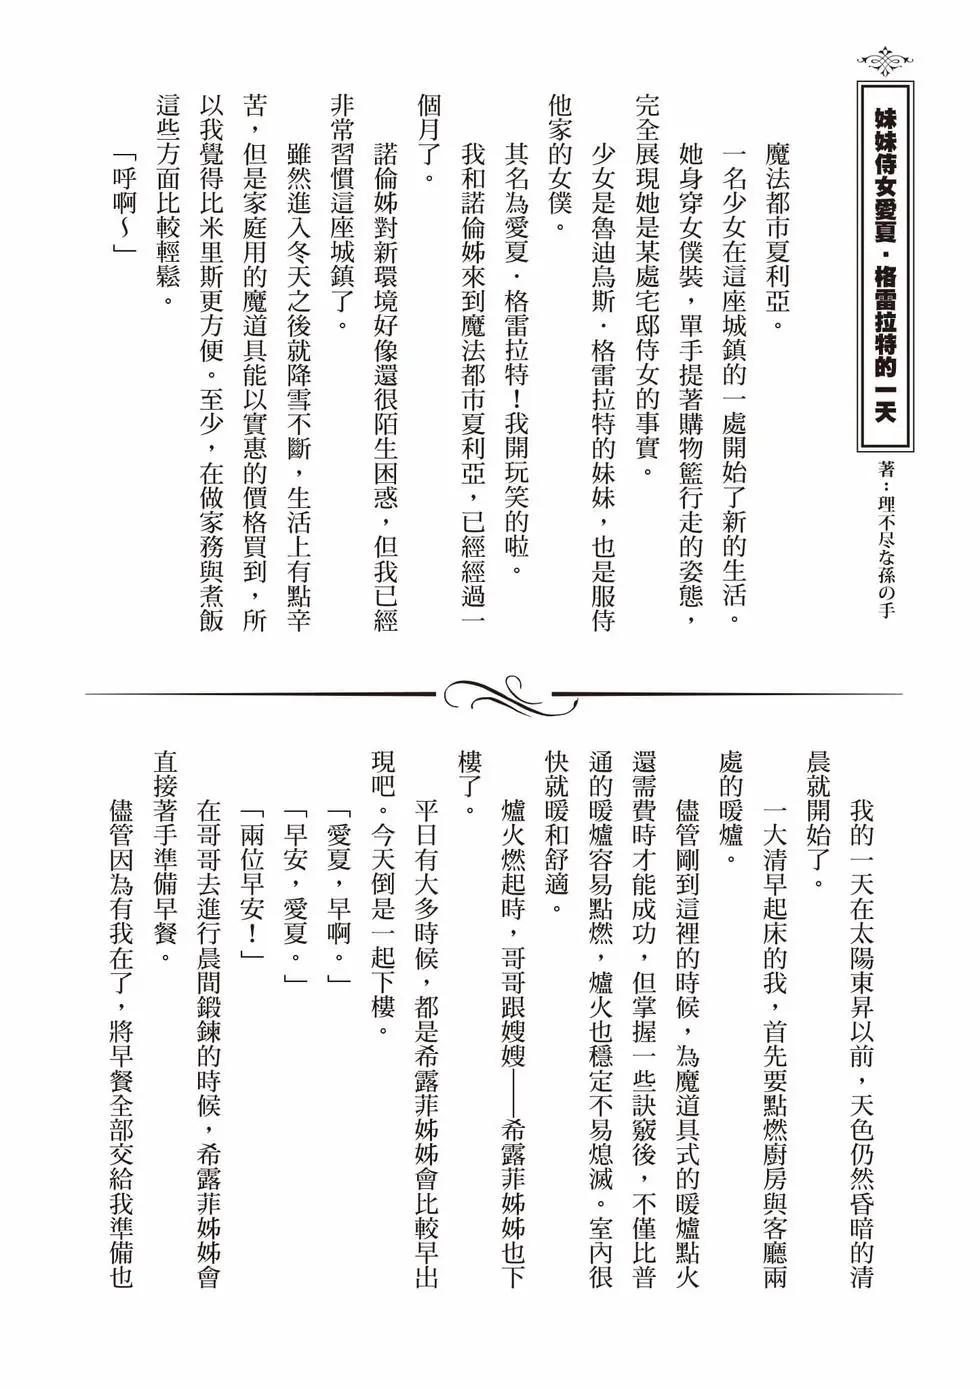 妹妹侍女愛夏．格雷拉特的一天
著：理不尽な孫の手
魔法都市夏利亞。
一名少女在這座城鎮的一處開始了新的生活。
她身穿女僕裝，單手提著購物籃行走的姿態，
完全展現她是某處宅邸侍女的事實。
少女是魯迪烏斯．格雷拉特的妹妹，也是服侍
他家的女僕。
其名為愛夏．格雷拉特！我開玩笑的啦。
我和諾倫姊來到魔法都市夏利亞，已經經過一
個月了。
諾倫姊對新環境好像還很陌生困惑，但我已經
非常習慣這座城鎮了。
雖然進入冬天之後就降雪不斷，生活上有點辛
苦，但是家庭用的魔道具能以實惠的價格買到，所
以我覺得比米里斯更方便。至少，在做家務與煮飯
這些方面比較輕鬆。
「呼啊～」
我的一天在太陽東昇以前，天色仍然昏暗的清
晨就開始了。
一大清早起床的我，首先要點燃廚房與客廳兩
處的暖爐。
儘管剛到這裡的時候，為魔道具式的暖爐點火
還需費時才能成功，但掌握一些訣竅後，不僅比普
通的暖爐容易點燃，爐火也穩定不易熄滅。室內很
快就暖和舒適。
爐火燃起時，哥哥跟嫂嫂——希露菲姊姊也下
樓了。
平日有大多時候，都是希露菲姊姊會比較早出
現吧。今天倒是一起下樓。
「愛夏，早啊。」
「早安，愛夏。」
「兩位早安！」
在哥哥去進行晨間鍛鍊的時候，希露菲姊姊會
直接著手準備早餐。
儘管因為有我在了，將早餐全部交給我準備也